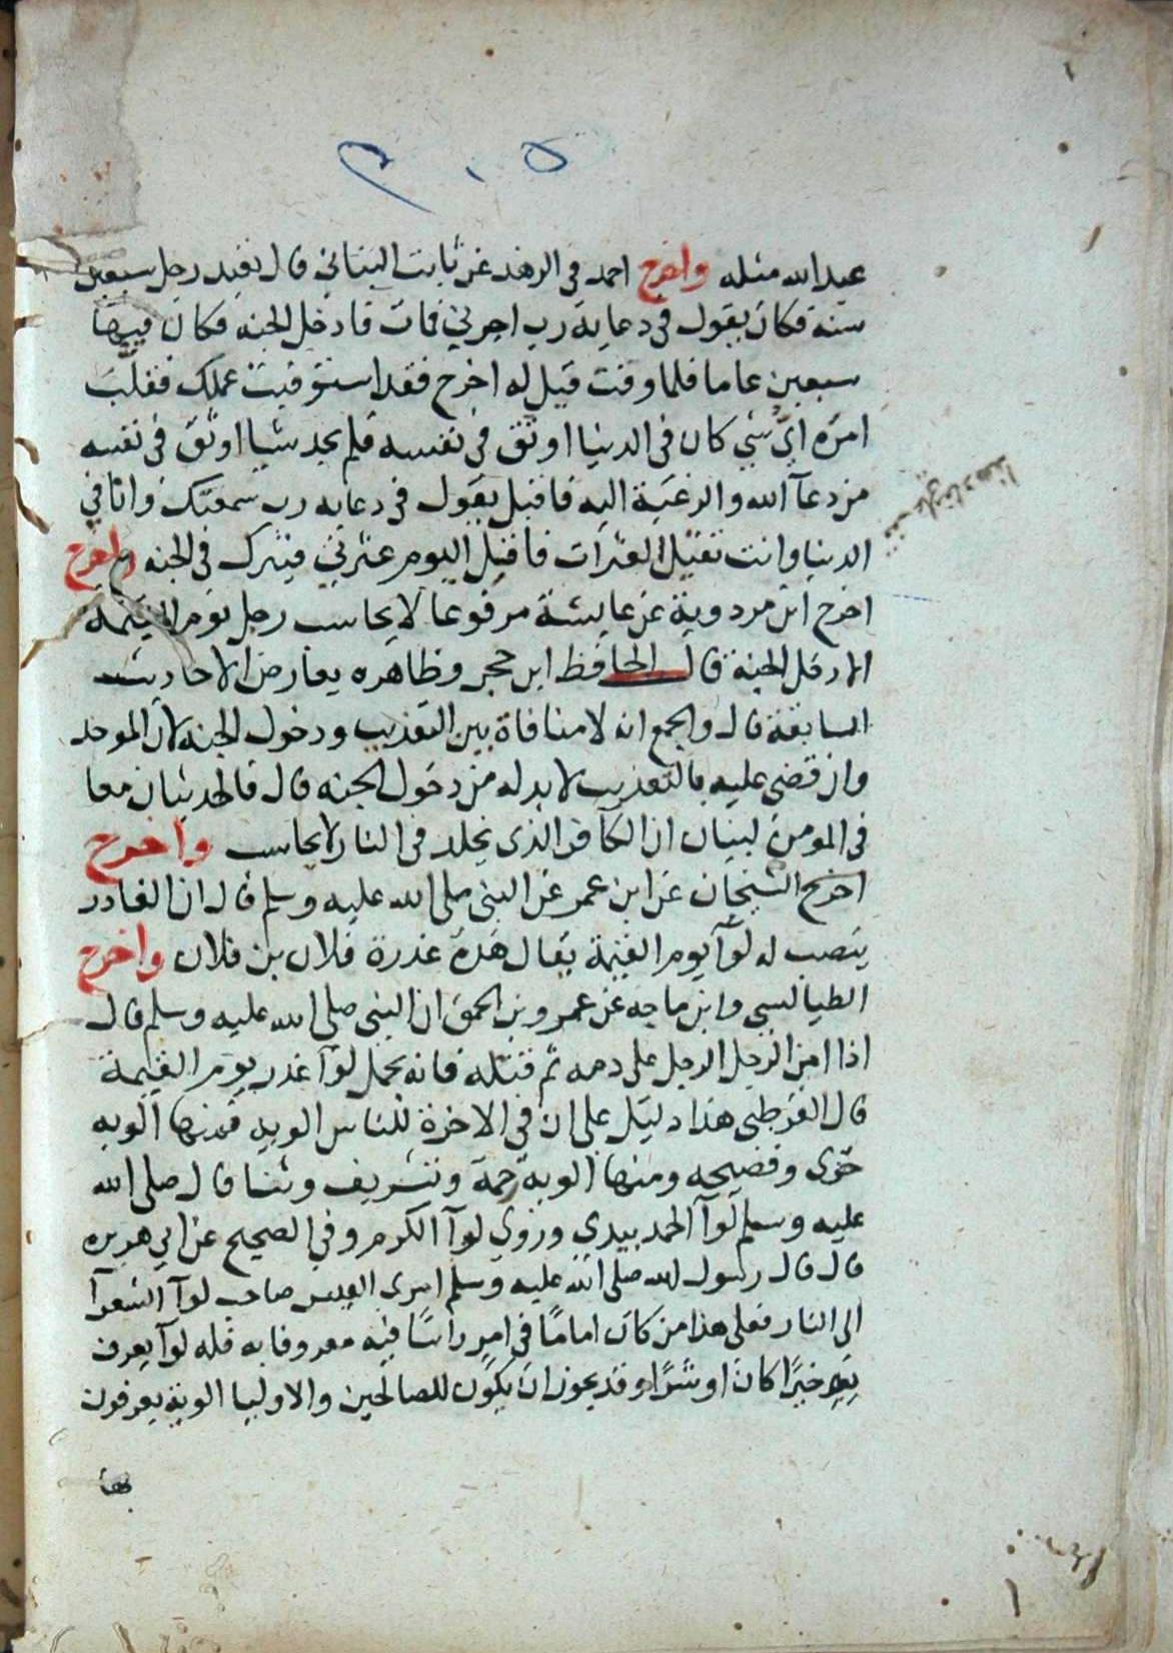 ٢٠٥
عبد الله مثله واخرج احمد في الزهد عن ثابت البناني قال تعبد رجل سبعين
سنة فكان يقول في دعايه رب اجرني فمات فادخل الجنه فكان فيها
سبعين عاما فلما وفت قيل له اخرج فقد استوفيت عملك فقلب
امره اي شي كان في الدنيا اوثق في نفسه فلم يجد شيا اوثق في نفسه
من دعآ الله والرغبة اليه فاقبل يقول في دعايه رب سمعتك وانا في
الدنيا وانت تقيل العثرات فاقيل اليوم عثرتي فيترك في الجنه واخرج
اخرج ابن مردوية عن عايشة مرفوعا لا يحاسب رجل يوم القيمة
الا دخل الجنة قال الحافظ ابن حجر وظاهره يعارض الاحاديث
السابقة قال والجمع انه لا منافاة بين التعذيب ودخول الجنه لان الموحد
وان قضى عليه بالتعذيب لا بد له من دخول الجنه قال فالحديثان معا
في المومن لبيان ان الكافر الذي يخلد في النار لا يحاسب واخرج
اخرج الشيخان عن ابن عمر عن النبي صلى الله عليه وسلم قال ان الغادر
ينصب له لوآ يوم القيمة يقال هذه غدرة فلان بن فلان واخرج
الطيالسي وابن ماجه عن عمرو بن الحمق ان النبي صلى الله عليه وسلم قال
اذا امن الرجل الرجل على دمه ثم قتله فانه يحمل لوآ غدر يوم القيمة
قال القرطبي هذا دليل على ان في الاخرة للناس الويه فمنها الويه
خزى وفضيحه ومنها الوية رحمة وتشريف وثنا قال صلى الله
عليه وسلم لوآ الحمد بيدي وروي لوآ الكرم وفي الصحيح عن ابي هريره
قال قال رسول الله صلى الله عليه وسلم امرى القيس صاحب لوآ الشعرآ
الى النار فعلى هذا من كان اماما في امر راسًا فيه معروفا به فله لوآ يعرف
به خيرًا كان او شرًا وقد يجوز ان يكون للصالحين والاوليا الوية يعرفون
بها